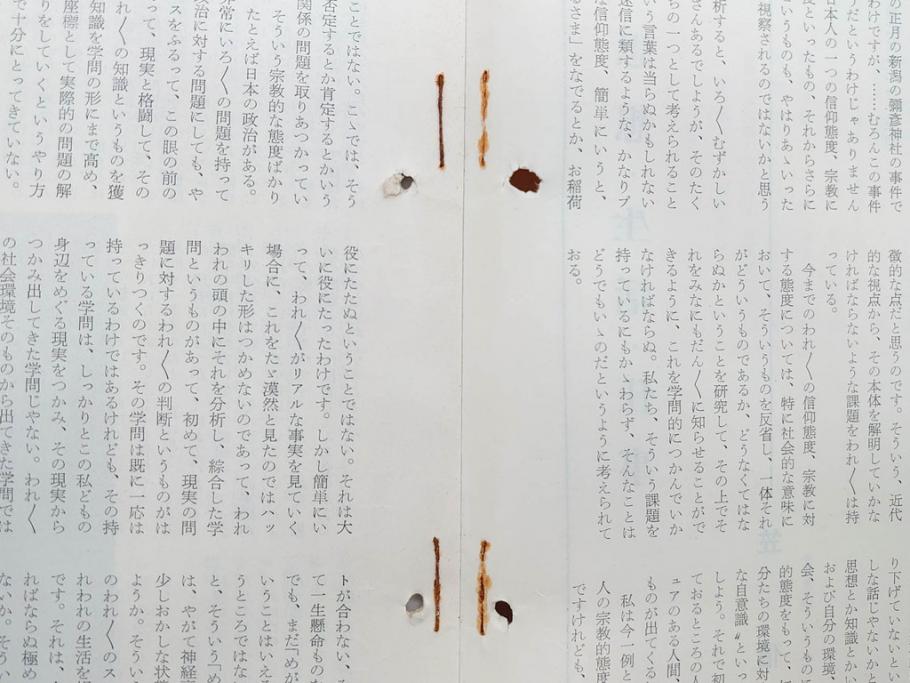 の正月の新潟の彌彦神社の事件で
わけですが、……むろんこの事件
うだというわけじゃありません
日本人の一つの信仰態度、宗教に
度といったもの、それからさらに
というものも、やはりあゝいった
視察されるのではないかと思う
析すると、いろ〳〵むずかしい
さんあるでしょうが、そのたく
ちの一つとして考えられること
いう言葉は当らぬかもしれない
迷信に類するような、かなりプ
な信仰態度、簡単にいうと、
るさま」をなでるとか、お稲荷
徴的な点だと思うのです。そういう、近代
的な視点から、その本体を解明していかな
ければならないような課題をわれ〳〵は持
っている。
今までのわれ〳〵の信仰態度、宗教に対
する態度については、特に社会的な意味に
おいて、そういうものを反省し、一体それ
がどういうものであるか、どうなくてはな
らぬかということを研究して、その上でそ
れをみなにもだん〳〵に知らせることがで
きるように、これを学問的につかんでいか
なければならぬ。私たち、そういう課題を
持っているにもかゝわらず、そんなことは
どうでもいゝのだというように考えられて
おる。
り下げていないとい
しな話じゃないかと
思想とか知識とかい
および自分の環境、
会、そういうものに
的態度をもって、
分たちの環境に対
な自意識〟といっ
しよう。それで初
ておるところの人
ュアのある人間、
ものが出てくる
私は今一例と
人の宗教的態度
ですけれども、
ことではない。こゝでは、そう
否定するとか肯定するとかいう
関係の問題を取りあつかってい
そういう宗教的な態度ばかり
たとえば日本の政治がある。
非常にいろ〳〵の問題を持って
政治に対する問題にしても、や
スをふるって、この眼の前の
って、現実と格闘して、その
れ〳〵の知識というものを獲
知識を学問の形にまで高め、
座標として実際的の問題の解
りをしていくというやり方
で十分にとってきていない。
役にたたぬということではない。それは大
いに役にたったわけです。しかし簡単にい
って、われ〳〵がリアルな事実を見ていく
場合に、これをたゞ漠然と見たのではハッ
キリした形はつかめないのであって、われ
われの頭の中にそれを分析し、綜合した学
問というものがあって、初めて、現実の問
題に対するわれ〳〵の判断というものがは
っきりつくのです。その学問は既に一応は
持っているわけではあるけれども、その持
っている学問は、しっかりとこの私どもの
身辺をめぐる現実をつかみ、その現実から
つかみ出してきた学問じゃない。われ〳〵
の社会環境そのものから出てきた学問では
トが合わない、
て一生懸命もの
でも、まだ「めが
いうことはいえる
うところではな
と、そういう「め
は、やがて神経
少しおかしな状
ようか。そうい
のわれ〳〵のス
れわれの生活を
です。それは、
ればならぬ極め
ないか。そうい